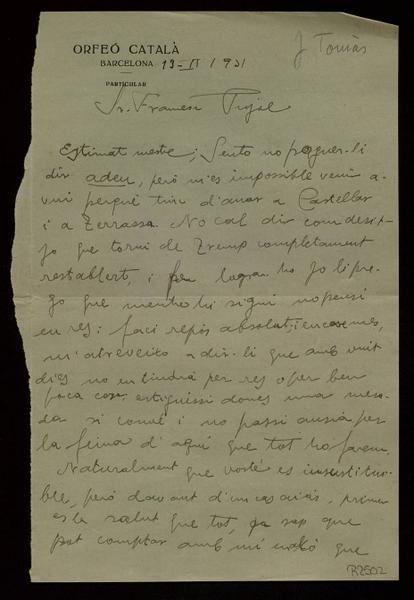 J Tomàs
ORFEÓ CATALÀ
BARCELONA 13-II/931
PARTICULAR
Sr. Francesc Pujol
Estimat mestre; Sento no poguer-li
dir adeu, però m'es impossible venir a-
vui perquè tinc d'anar a Castellar
i a Terrassa. No cal dir com desit-
jo que torni de Tremp completament
restablert, i per lograr-ho jo li pre-
go que mentre hi sigui no pensi
en res i faci repòs absolut; i encare mes,
m'atreveixo a dir-li que amb vuit
dies no en tindrà per res o per ben
poca cosa, estiguessi doncs una mesa-
da si convé i no passi ansia per
la feina d'aquí que tot ho farem.
Naturalment que vostè es insustituï-
ble, però davant d'un cas així, primer
es la salut que tot, ja sap que
pot comptar amb mi en lo que
R2502